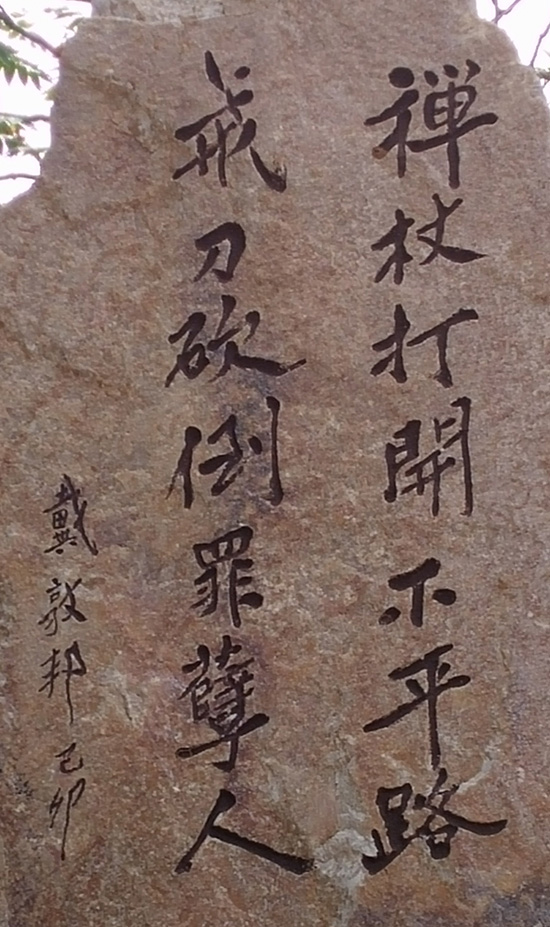 禅杖打開不平路
戒刀砍倒罪孽人
戴敦邦己卯